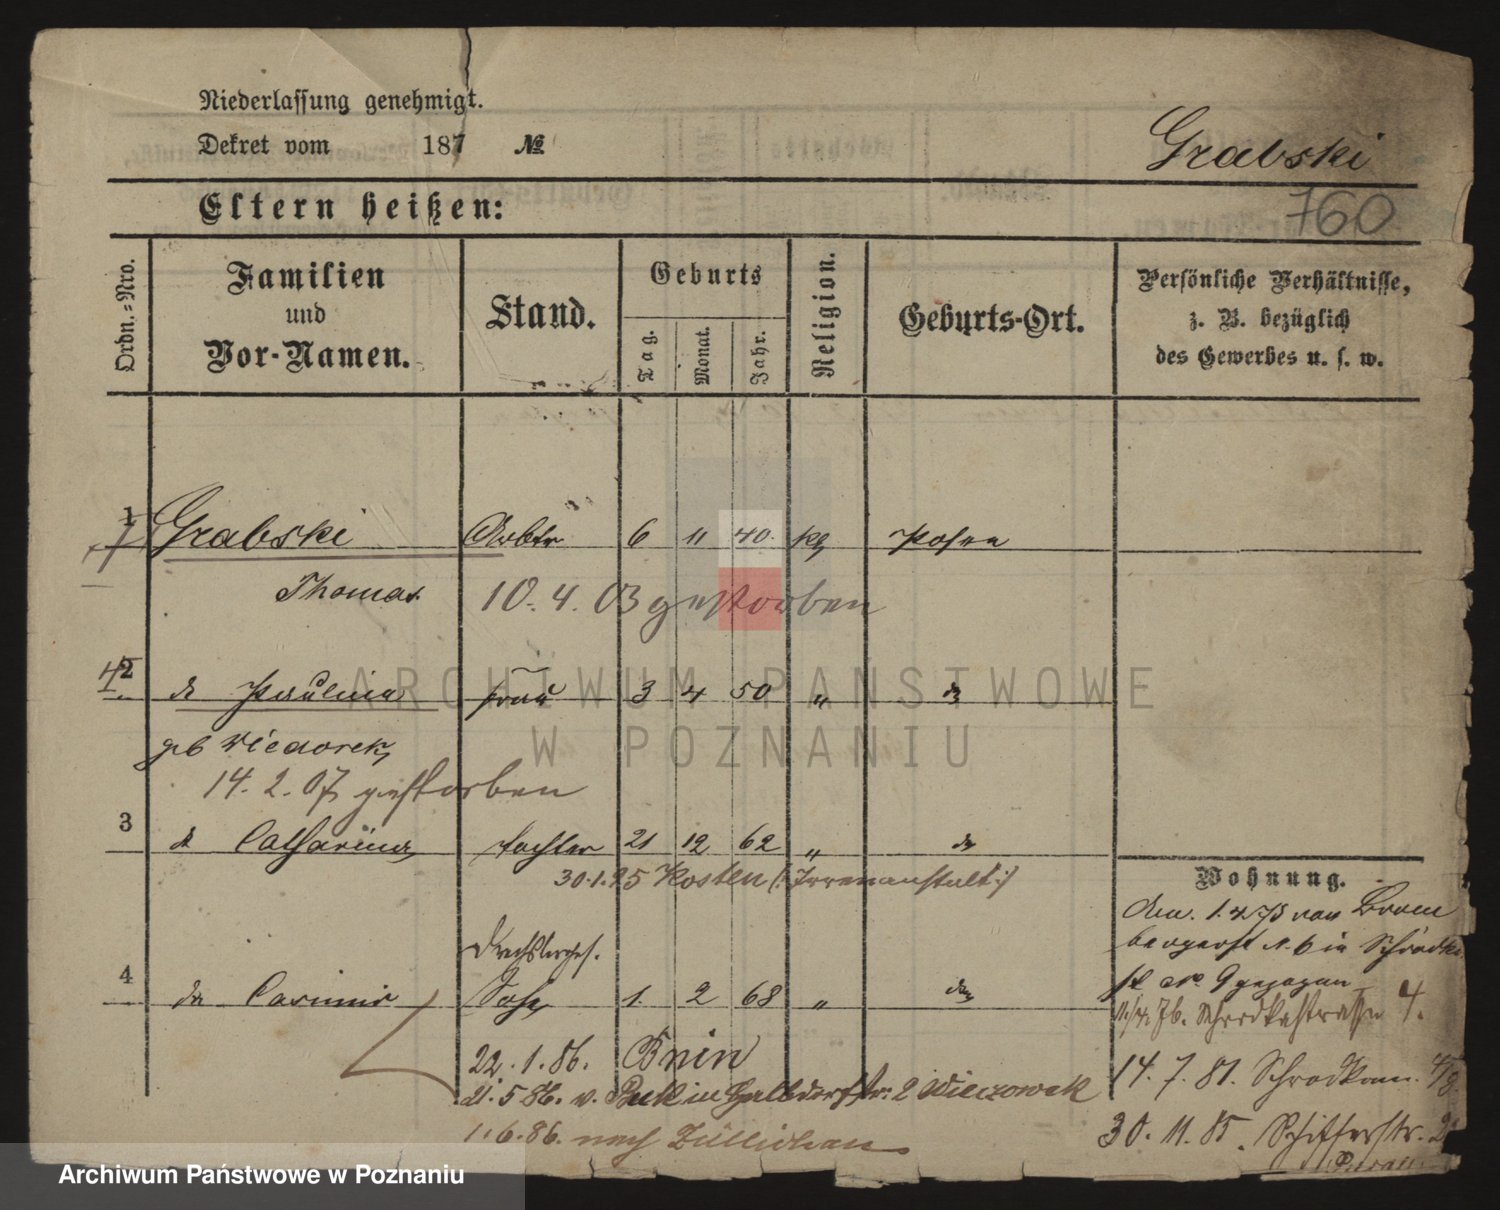 Niederlassung genehmigt.
Dekret vom 187 №
Grabski
760
Eltern heißen:
Ordn.=Nro.
Familien und Vor-Namen.
Stand.
Geburts
Tag.
Monat.
Jahr.
Religion.
Geburts-Ort.
Persönliche Verhältnisse,
z. B. bezüglich
des Gewerbes u. s. w.
1 Grabski Arbtr 6 11 40. kth Posen
Thomas 10. 4. 03 gestorben
2 do Paulina Frau 3 4 50 " do
geb Wieczorek
14. 2. 07 gestorben
3 do Catharina Tochter 21 12 62 " do
30.1.95 Kosten (: Irrenanstalt :)
Drechslerges.
4 do Casimir Sohn 1. 2 68 " do
22. 1. 86. Bnin
5 86. v. in 2 Wieczorek
1. 6. 86. nach Züllichau
Wohnung.
1. 4 75 von Brom
bergerst N. 6 in Schrodka
st No 9 gezogen
76. Schrodkastrasse 4.
14. 7. 81. Schrodkam.
30. 11. 85. Schifferstr.
ARCHIWUM PAŃSTWOWE
W POZNANIU
Archiwum Państwowe w Poznaniu